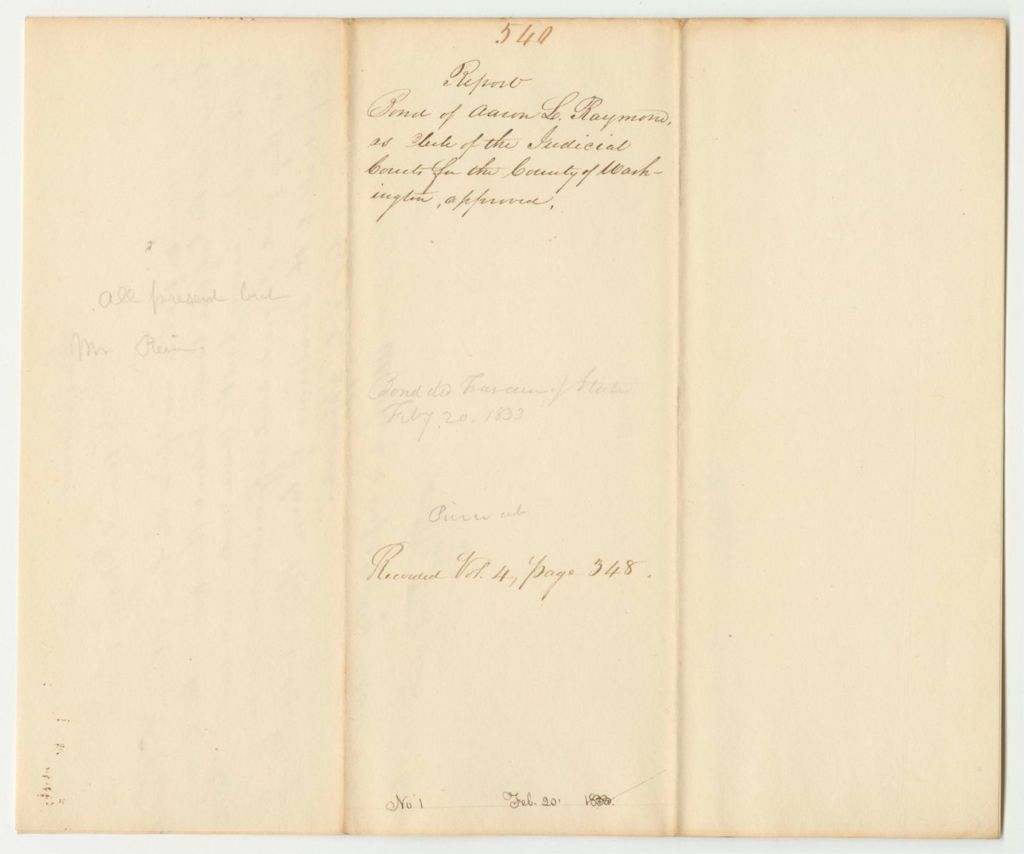 540
Report
Bond of Aaron L. Raymond,
as Clerk of the Judicial
Courts for the County of Wash-
ington, approved.
All present but
Mr
Bond del Treasurer of State
Feby 20. 1833
Recorded Vol. 4, page 348.
No 1 Feb. 20. 1833.